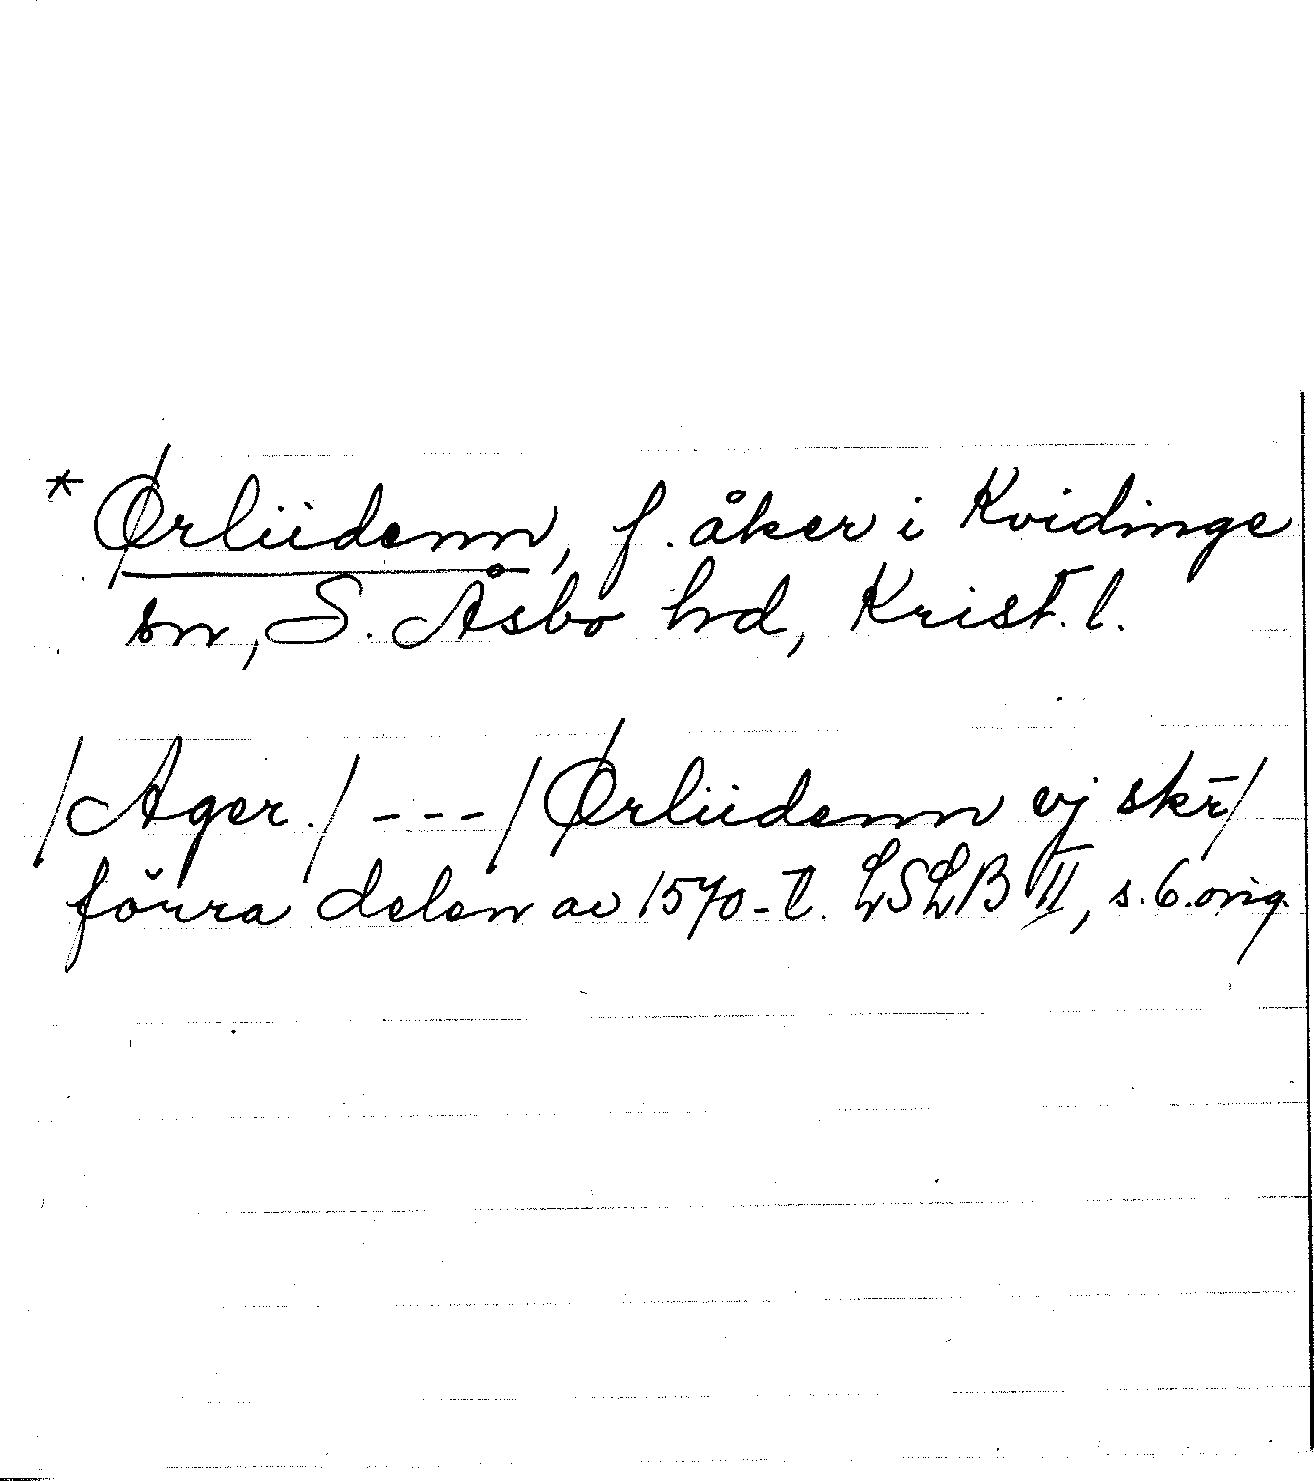 * Ørliidenn, f. åker i Kvidinge
sn, S. Åsbo hd, Krist. l.
/Ager./ --- /Ørliidenn vj skr̄/
förra delen av 1570-t. LSLB II, s. 6. orig.